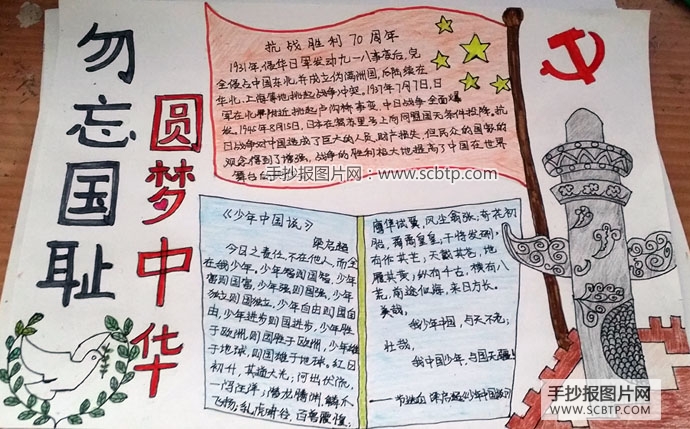 勿忘国耻
圆梦中华
抗战胜利70周年
1931年侵华日军发动九一八事变后，完
全侵占中国东北，并成立伪满洲国，后陆续在
华北、上海等地挑起战争冲突，1937年7月7日，日
军在北平附近挑起卢沟桥事变，中日战争全面爆
发。1945年8月15日，日本在
向同盟国无条件投降。抗
日战争对中国造成了巨大的人员、财产损失，但民众的国家的
观念得到了增强，战争的胜利极大地提高了中国在世界
舞台
手抄报图片网：www.scbtp.com
《少年中国说》
梁启超
今日之责任，不在他人，而全
在我少年，少年智则国智，少年
富则国富，少年强则国强，少年
独立则国独立，少年自由则国自
由，少年进步则国进步，少年胜
于欧洲，则国胜于欧洲，少年雄
于地球，则国雄于地球。红日
初升，其道大光；河出伏流，
一泻汪洋；潜龙腾渊，鳞爪
飞扬；乳虎啸谷，百兽震惶；
鹰隼试翼，风尘翕张；奇花初
胎，矞矞皇皇；干将发硎，
有作其芒；天戴其苍，地
履其黄；纵有千古，横有八
荒，前途似海，来日方长。
美哉，
我少年中国，与天不老；
壮哉，
我中国少年，与国无疆！
——节选自 梁启超《少年中国说》
手抄报图片网
WWW.SCBTP.COM